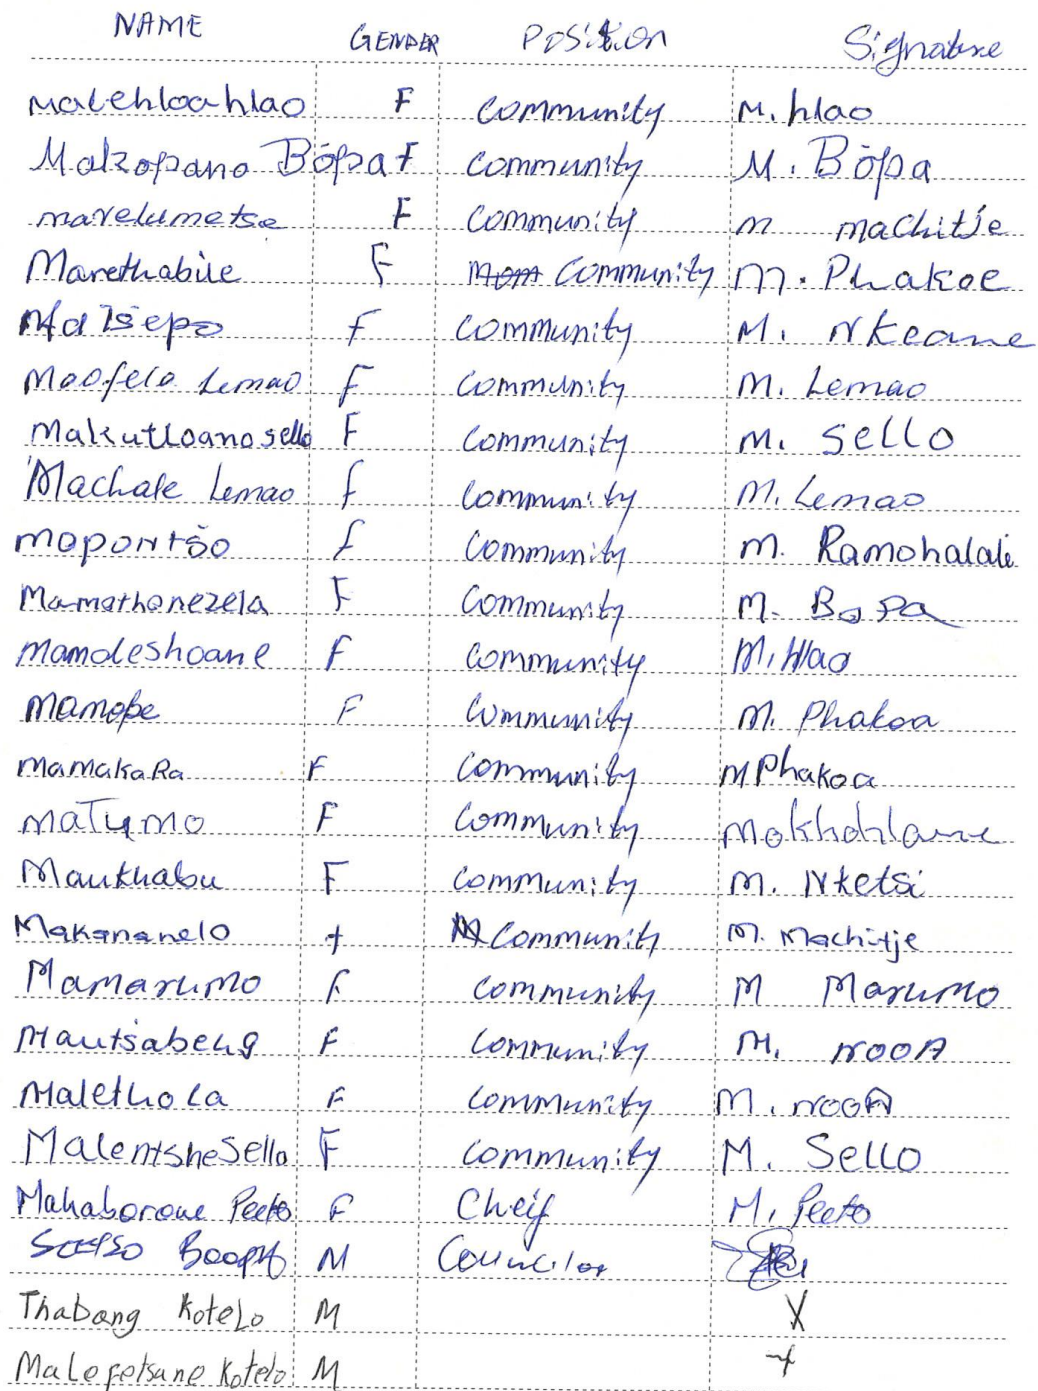 NAME GENDER Position Signature
Malehloahlao F Community M. hlao
Makopano Bópa F Community M. Bópa
marelumetse F Community m machitje
Marethabile F Community M. Phakoe
Matšepo F Community M. Nkeane
Maofela Lemao F Community M. Lemao
Makutloano sello F Community M. Sello
Machale Lemao f Community M. Lemao
mapontšo f Community M. Ramohalali
Mamathonezela F Community M. Bopa
Mamoleshoane F Community M. Hlao
Mamope F Community M. Phakoa
MamakaRa F Community M Phakoa
maTumo F Community Mokhohlane
Maukhabu F Community M. Nketsi
Makananelo f Community M. Machitje
Mamarumo F Community M Marumo
Mautšabeng F Community M. NOOA
Malethola F Community M. NOOA
Malentshe Sello F Community M. Sello
Mahaborone Peeto F Cheif M. Peeto
M Councilor
Thabang Kotelo M X
Malefetsane Kotelo M